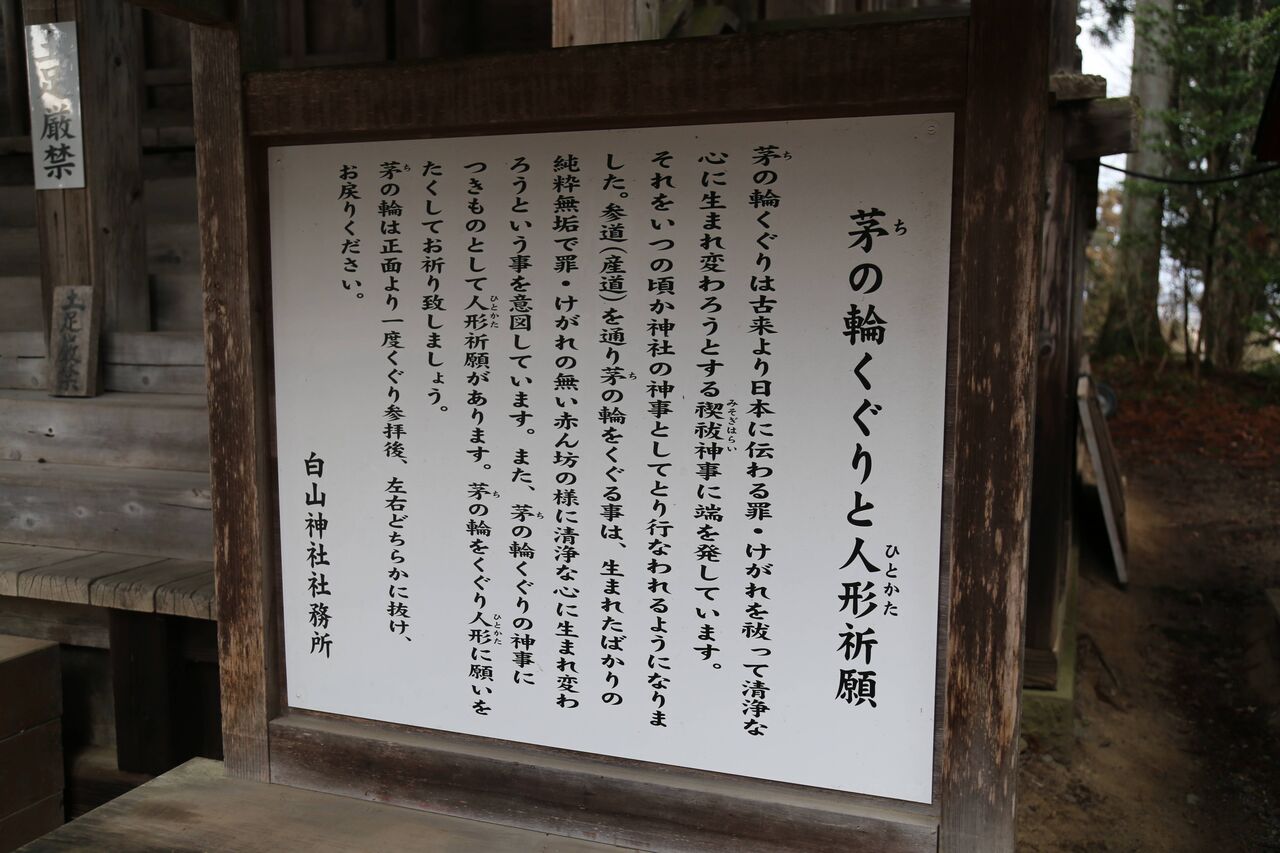 茅の輪くぐりと人形祈願
茅の輪くぐりは古来より日本に伝わる罪・けがれを祓って清浄な
心に生まれ変わろうとする禊祓神事に端を発しています。
それをいつの頃か神社の神事としてとり行なわれるようになりま
した。参道(産道)を通り茅の輪をくぐる事は、生まれたばかりの
純粋無垢で罪・けがれの無い赤ん坊の様に清浄な心に生まれ変わ
ろうという事を意図しています。また、茅の輪くぐりの神事に
つきものとして人形祈願があります。茅の輪をくぐり人形に願いを
たくしてお祈り致しましょう。
茅の輪は正面より一度くぐり参拝後、左右どちらかに抜け、
お戻りください。
白山神社社務所
土足厳禁
土足厳禁